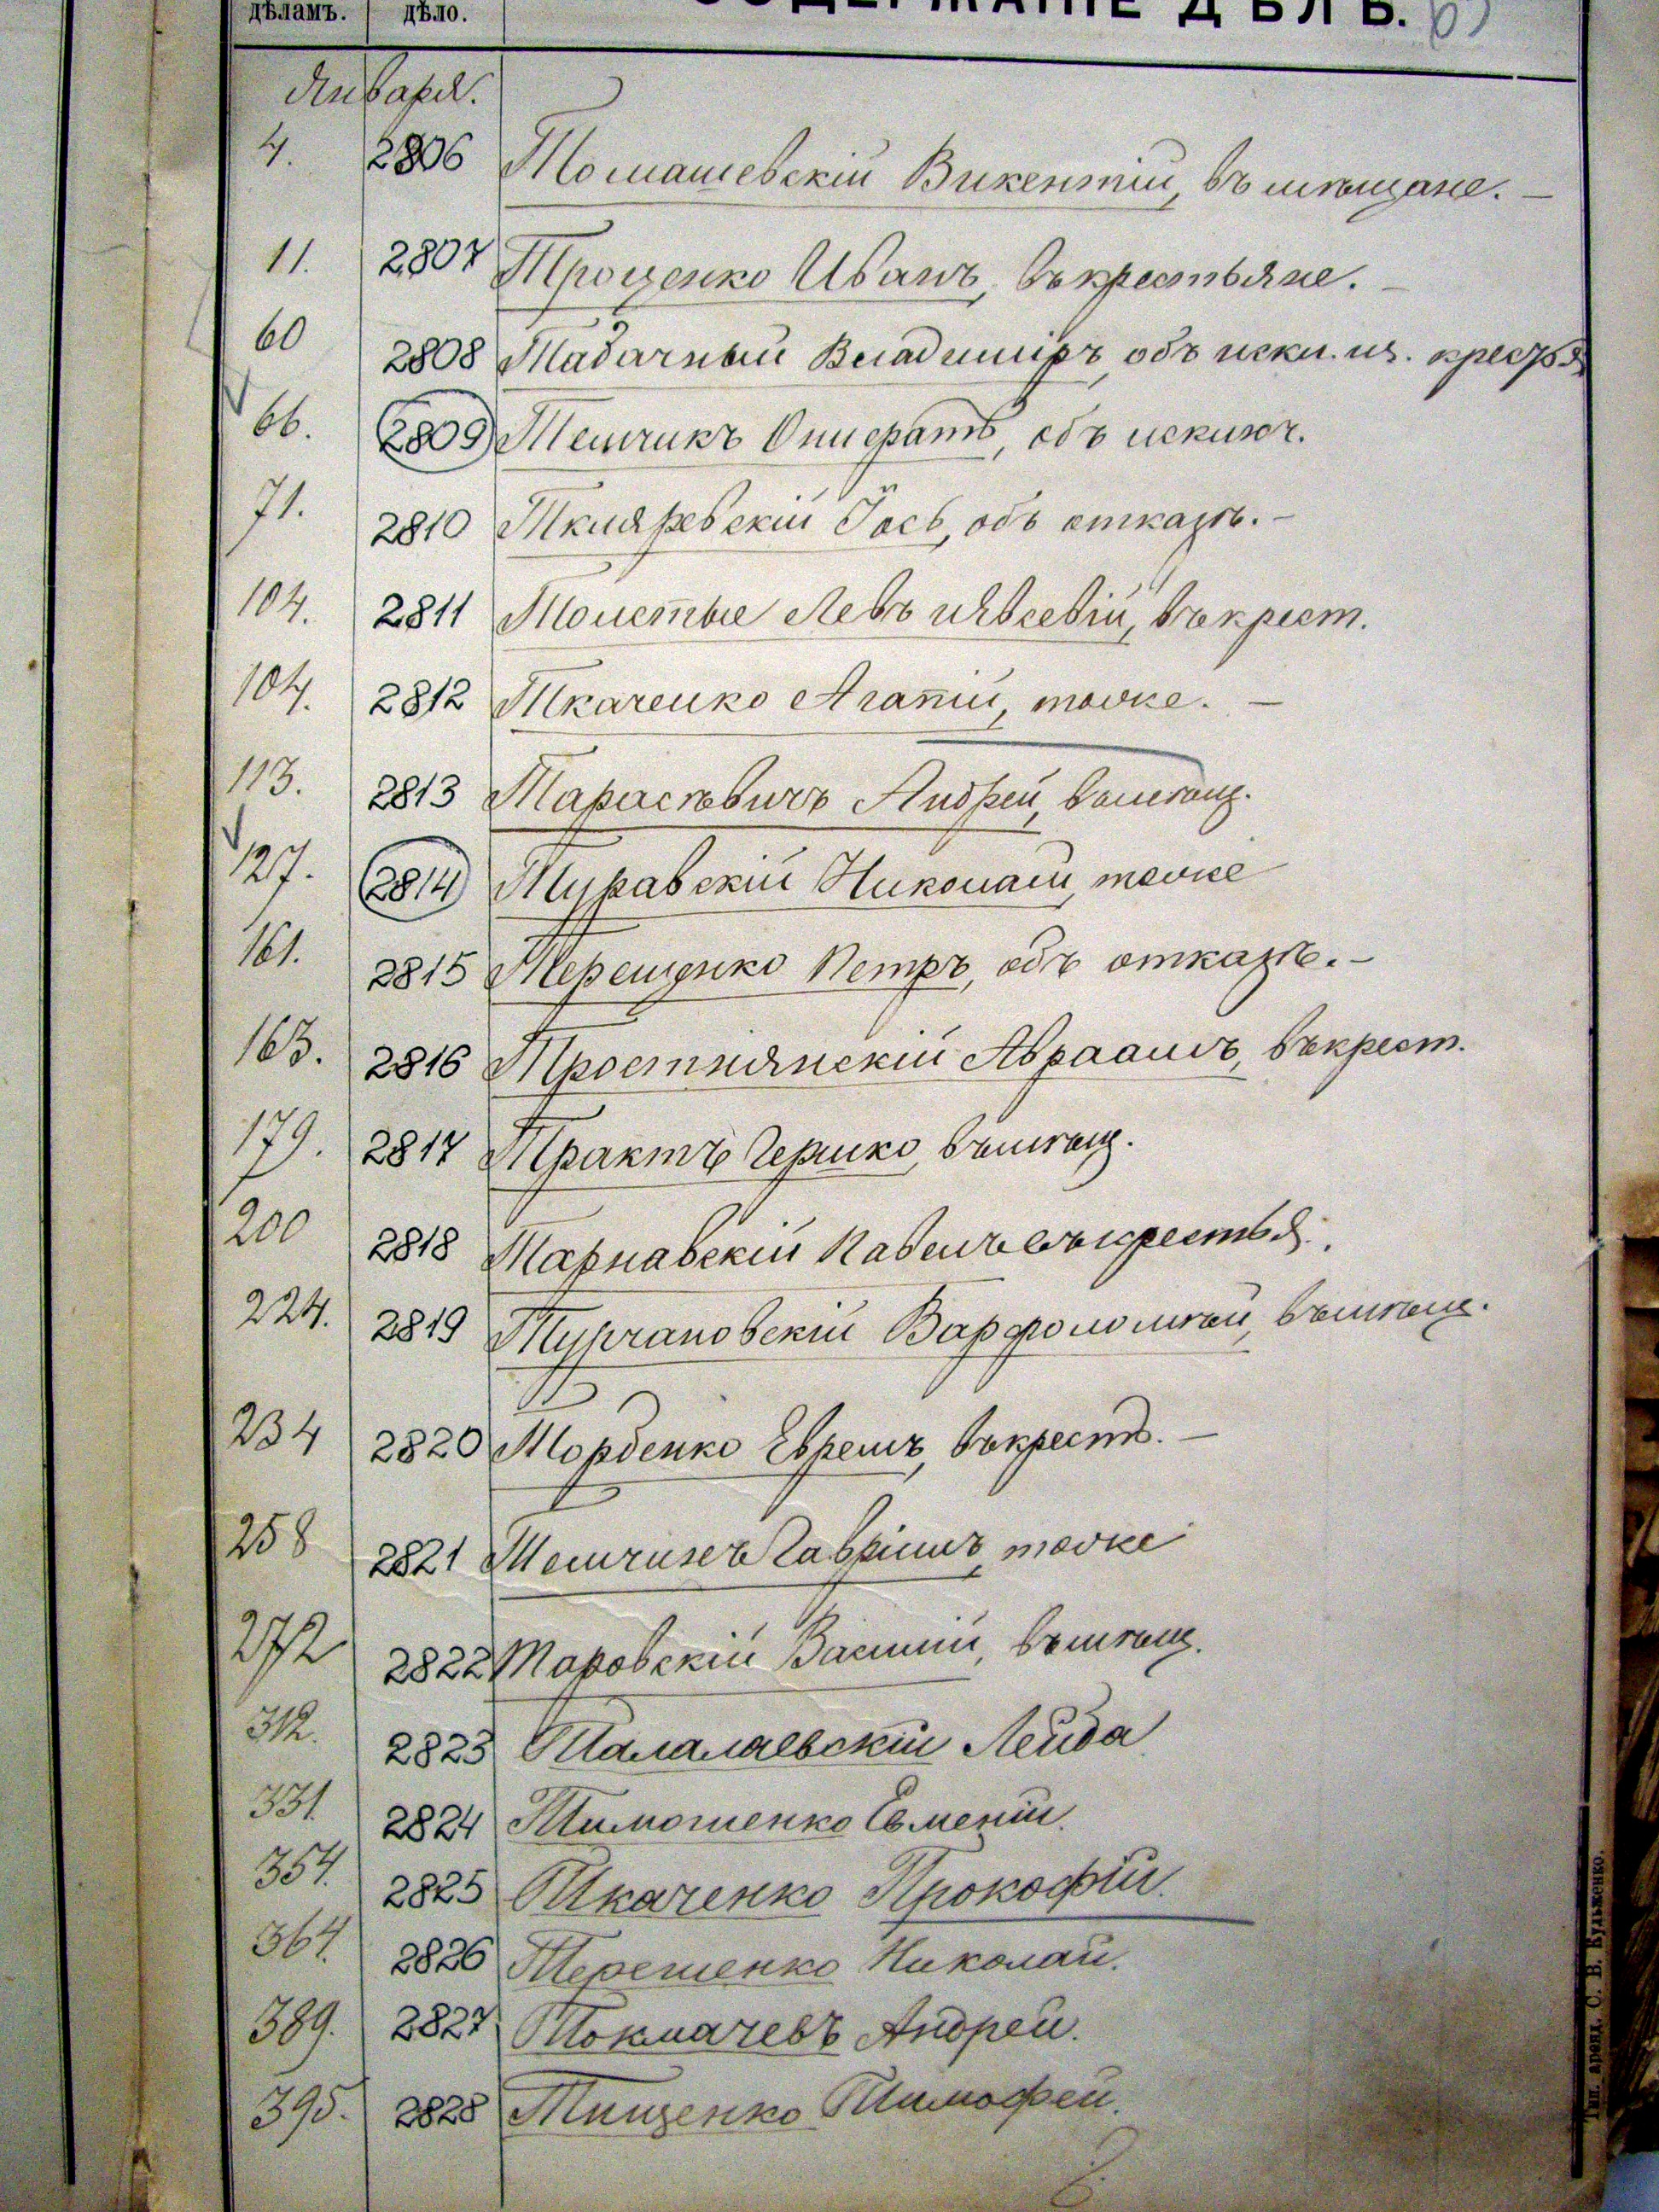 дѣламъ. дѣло. СОДЕРЖАНІЕ ДѢЛЪ.
Января.
4. 2806 Томашевскій Викентій, въ мѣщане. —
11. 2807 Троценко Иванъ, въ крестьяне. —
60 2808 Табачный Владиміръ, объ искл. из. крестья
66. 2809 Темчикъ Онисратъ, объ исключ.
71. 2810 Ткляревскій Іось, объ отказѣ. —
104. 2811 Толстые Левъ и Явсевій, въ крест.
104. 2812 Ткаченко Агапій, тоже. —
113. 2813 Тарасѣвичъ Андрей, въ мѣщ.
127. 2814 Туравскій Николай, тоже
161. 2815 Терещенко Петръ, объ отказѣ. —
163. 2816 Тростнянскій Авраамъ, въ крест.
179. 2817 Трактъ Гершко, въ мѣщ.
200 2818 Тарнавскій Павелъ въ крестья.
224. 2819 Турчановскій Варфоломѣй, въ мѣщ.
234 2820 Торбенко Ефремъ, въ крест. —
258 2821 Темчикъ Гавріилъ, тоже
272 2822 Таровскій Василій, въ мѣщ.
312. 2823 Талалаевскій Лейба
331. 2824 Тимошенко Евменій.
354. 2825 Ткаченко Прокофій.
364. 2826 Терешенко Николай.
389. 2827 Токмачевъ Андрей.
395. 2828 Тищенко Тимофей.
Тип. аренд. С. В. Кульженко.